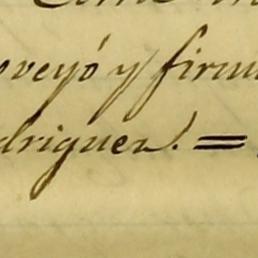 oveyó y firm
driguez. =